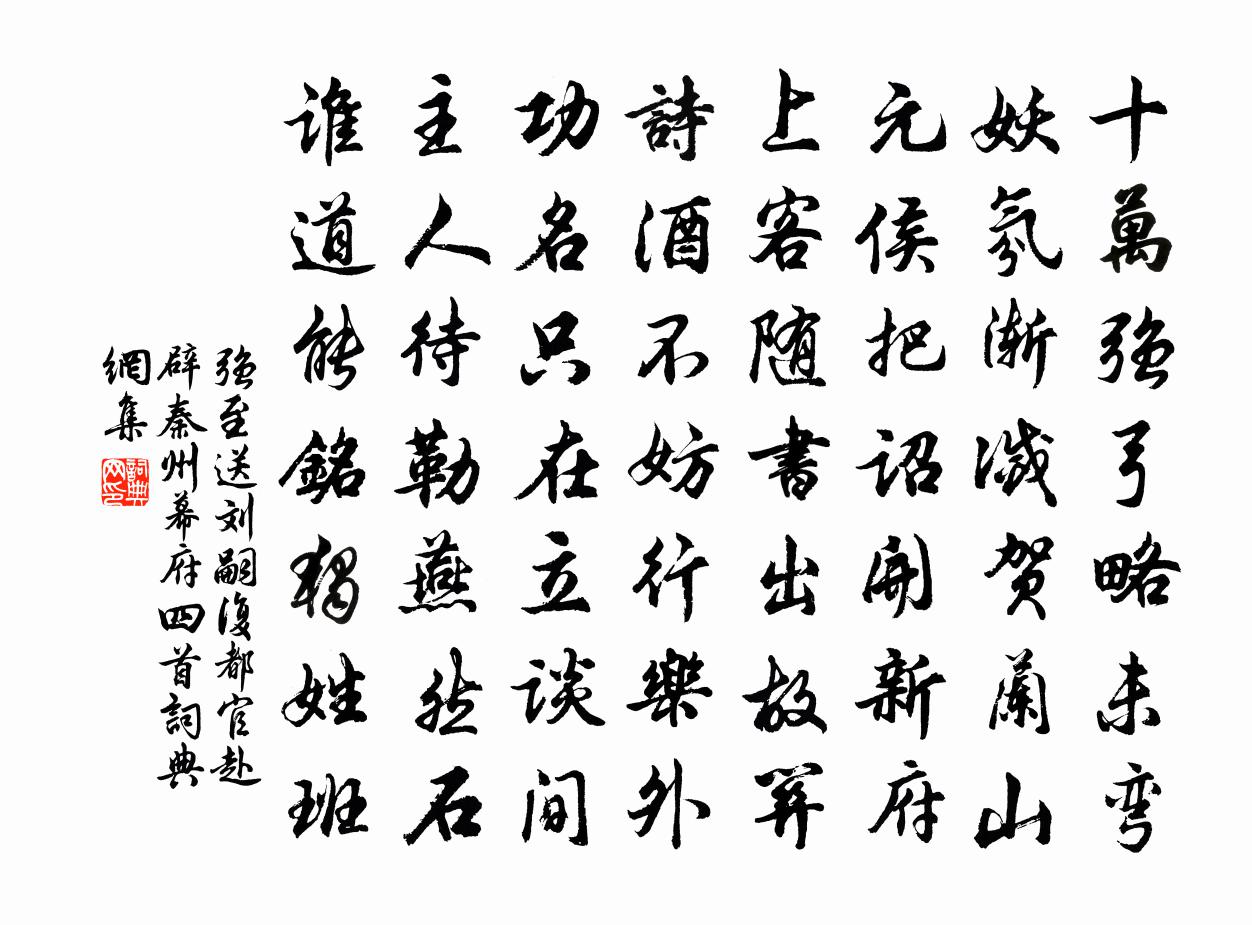 十萬強弓略未弯
妖氛渐滅贺蘭山
元侯把诏開新府
上客随書出故関
詩酒不妨行樂外
功名只在立谈间
主人待勒燕然石
谁道能銘獨姓班
強至送刘嗣復都官赴
辟秦州幕府四首詞典
網集
詞典网印